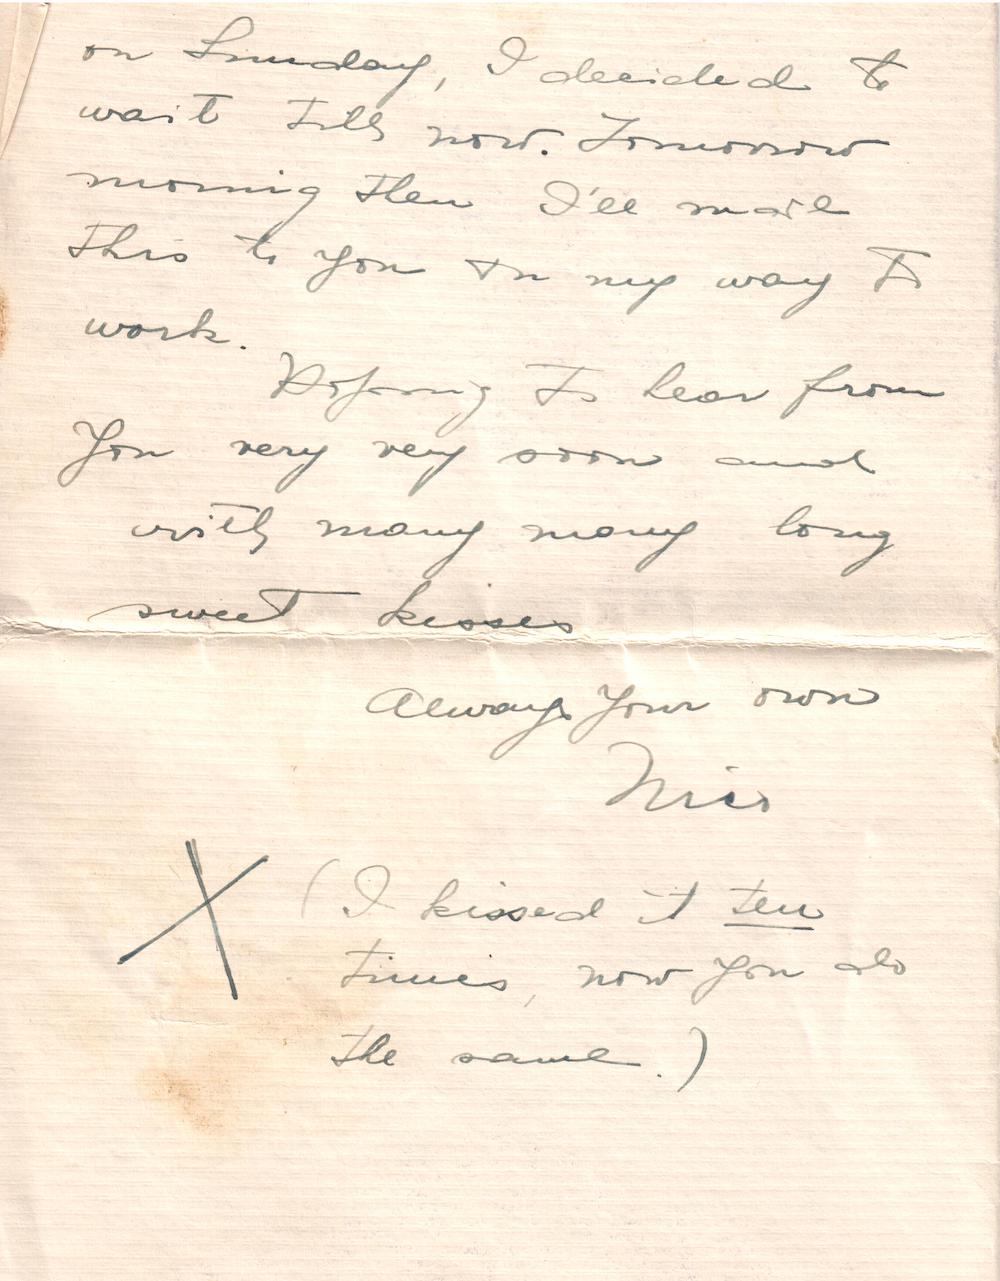 on Sunday, I decided to
wait till now. Tomorrow
morning then I'll mail
this to you on my way to
work.
Hoping to hear from
you very very soon and
with many many long
sweet kisses
Always your own
Nico
X (I kissed it ten
times, now you do
the same.)